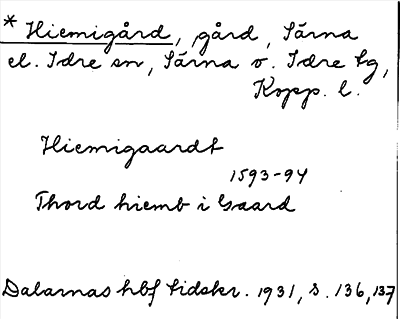 * Hiemigård, gård, Särna
el. Idre sn, Särna o. Idre tg,
Kopp. l.
Hiemigaardt
1593-94
Thord hiemb i Gaard
Dalarnas hbf tidskr. 1931, s. 136, 137